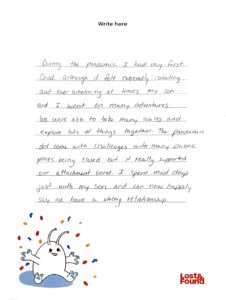 Write here
During the pandemic I had my first
child. although it felt extremely isolating
and overwhelming at times my son
and I went on many adventures.
We were able to take many walks and
explore lots of things together. The pandemic
did come with challenges with many
places being closed but it really supported
our attachment bond. I spent most days
just with my son and can now happily
say we have a strong relationship.
Lost&
Found